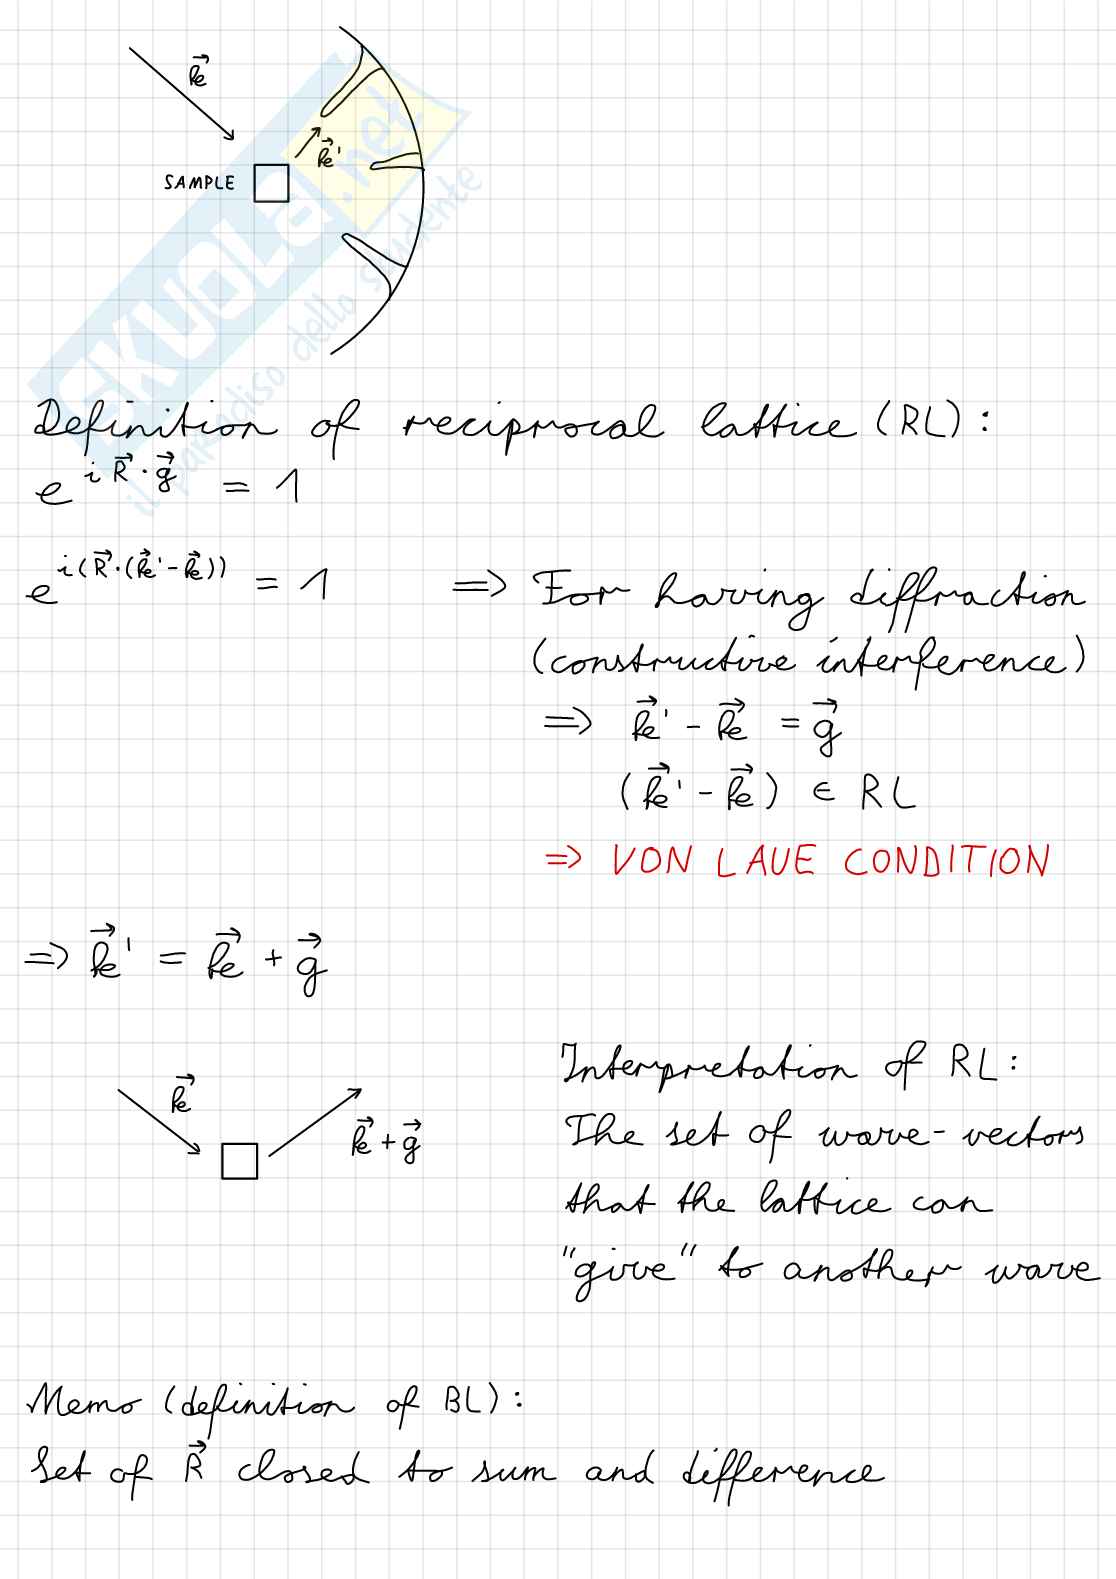 k⃗
k⃗'
SAMPLE
SKUOLA.net
il paradiso dello studente
Definition of reciprocal lattice (RL):
e^{i R⃗·g⃗} = 1
e^{i(R⃗·(k⃗'-k⃗))} = 1 => For having diffraction
(constructive interference)
=> k⃗' - k⃗ = g⃗
(k⃗' - k⃗) ∈ RL
=> VON LAUE CONDITION
=> k⃗' = k⃗ + g⃗
k⃗
k⃗ + g⃗
Interpretation of RL:
The set of wave-vectors
that the lattice can
"give" to another wave
Memo (definition of BL):
Set of R⃗ closed to sum and difference